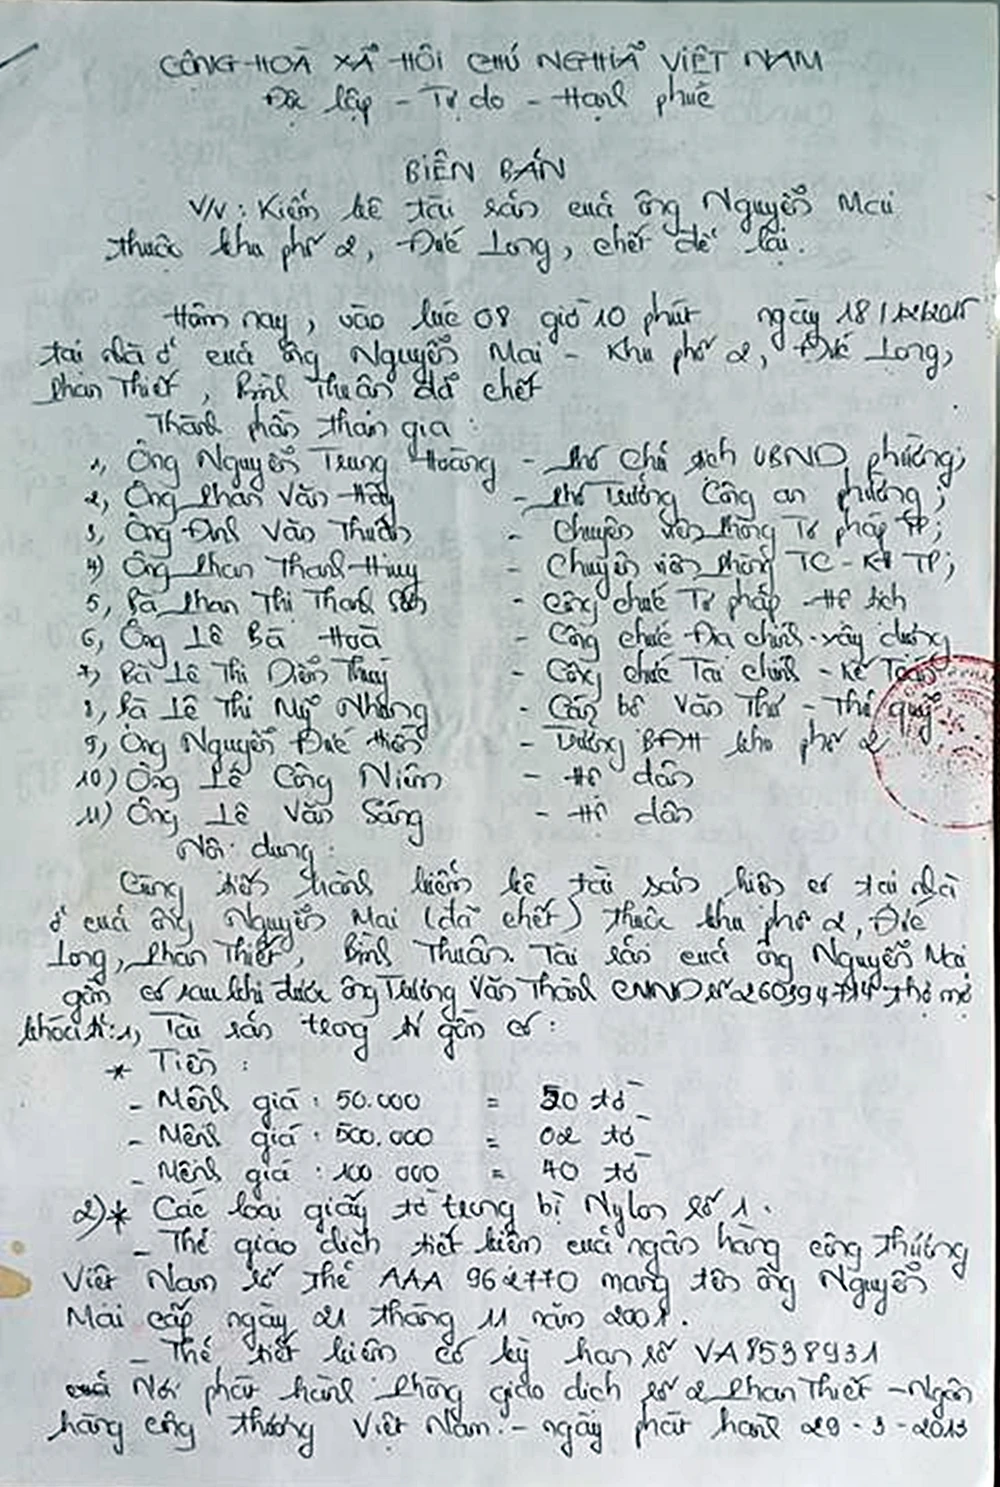 CỘNG HOÀ XÃ HỘI CHỦ NGHĨA VIỆT NAM
Độc lập - Tự do - Hạnh phúc
BIÊN BẢN
V/v: Kiểm kê tài sản của ông Nguyễn Mai
thuộc khu phố 2, Đức Long, chết để lại.
Hôm nay, vào lúc 08 giờ 10 phút ngày 18/
tại nhà ở của ông Nguyễn Mai - Khu phố 2, Đức Long,
Phan Thiết, Bình Thuận đã chết
Thành phần tham gia:
1, Ông Nguyễn Trung Hoàng - Phó Chủ tịch UBND phường;
2, Ông Phan Văn - Phó Trưởng Công an phường;
3, Ông Đinh Văn Thuần - Chuyên viên phòng Tư pháp TP;
4) Ông Phan Thanh Huy - Chuyên viên phòng TC - KH TP;
5, Bà Phan Thị Thanh - Công chức Tư pháp - Hộ tịch
6, Ông Lê Bá Hoà - Công chức Địa chính - xây dựng
7, Bà Lê Thị Diễm Thúy - Công chức Tài chính - Kế Toán
8, Bà Lê Thị Mỹ Nhung - Cán bộ Văn Thư - Thủ quỹ
9, Ông Nguyễn Đức Hiền - Trưởng BĐH khu phố 2
10) Ông Lê Công Niên - Hộ dân
11) Ông Lê Văn Sáng - Hộ dân
Nội dung:
Cùng tiến hành kiểm kê tài sản hiện có tại nhà
ở của ông Nguyễn Mai (đã chết) thuộc khu phố 2, Đức
Long, Phan Thiết, Bình Thuận. Tài sản của ông Nguyễn Mai
gồm có sau khi được ông Trương Văn Thành CMND số 260394714 thợ mở
khóa tủ: 1, Tài sản trong tủ gồm có:
* Tiền:
- Mệnh giá: 50.000 = 50 tờ
- Mệnh giá: 500.000 = 02 tờ
- Mệnh giá: 100.000 = 40 tờ
2) * Các loại giấy tờ trong bì Nylon số 1.
- Thẻ giao dịch tiết kiệm của ngân hàng công thương
Việt Nam số thẻ AAA 962770 mang tên ông Nguyễn
Mai cấp ngày 21 tháng 11 năm 2001.
- Thẻ tiết kiệm có kỳ hạn số VA8538931
của Nơi phát hành phòng giao dịch số 2 Phan Thiết - Ngân
hàng công thương Việt Nam. - ngày phát hành 29-3-2013